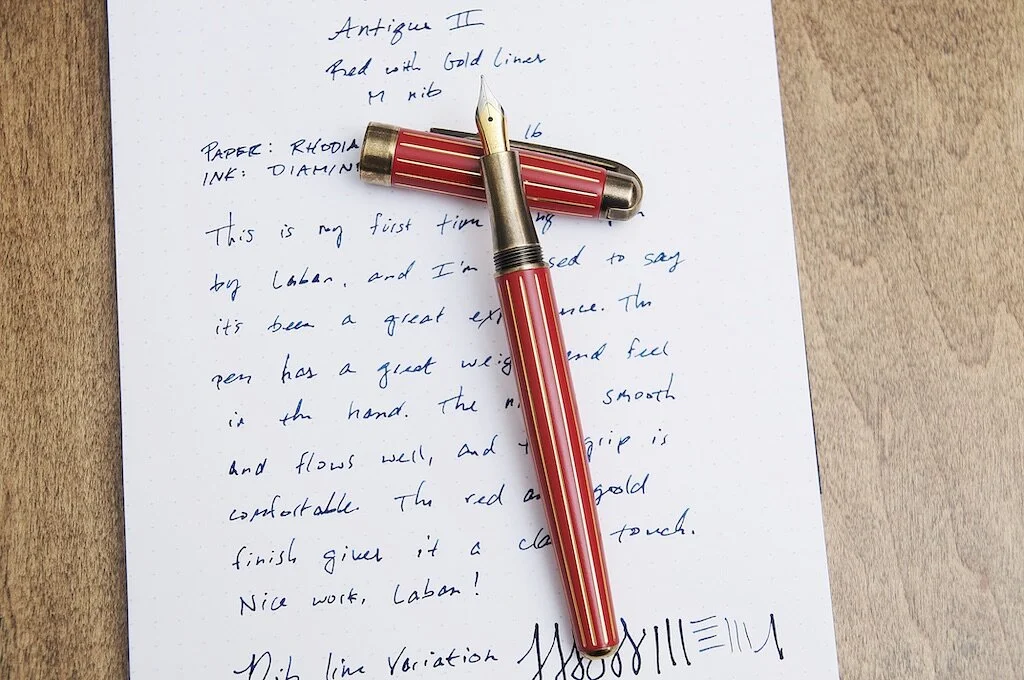 Antique II
Red with Gold Lines
M nib
PAPER: RHODIA 16
INK: DIAMIN
This is my first time
by Laban, and I'm sed to say
it's been a great exp nce. The
pen has a great weig and feel
in the hand. The n smooth
and flows well, and t grip is
comfortable. The red a goold
finish gives it a cla touch.
Nice work, Laban!
Nib line variation